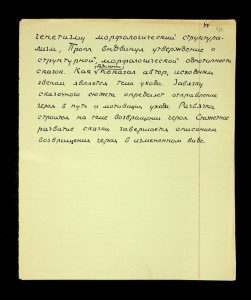 генетизму морфологический структура-
лизм, Пропп выдвинул утверждение о
структурной, морфологической однотипности
сказок. Как показал автор, исходным
звеном является тема ухода. Завязку
сказочного сюжета определяет отправление
героя в путь и мотивация ухода. Развязка
строится на теме возвращения героя. Сюжетное
развитие сказки завершается описанием
возвращения героя в изменённом виде.